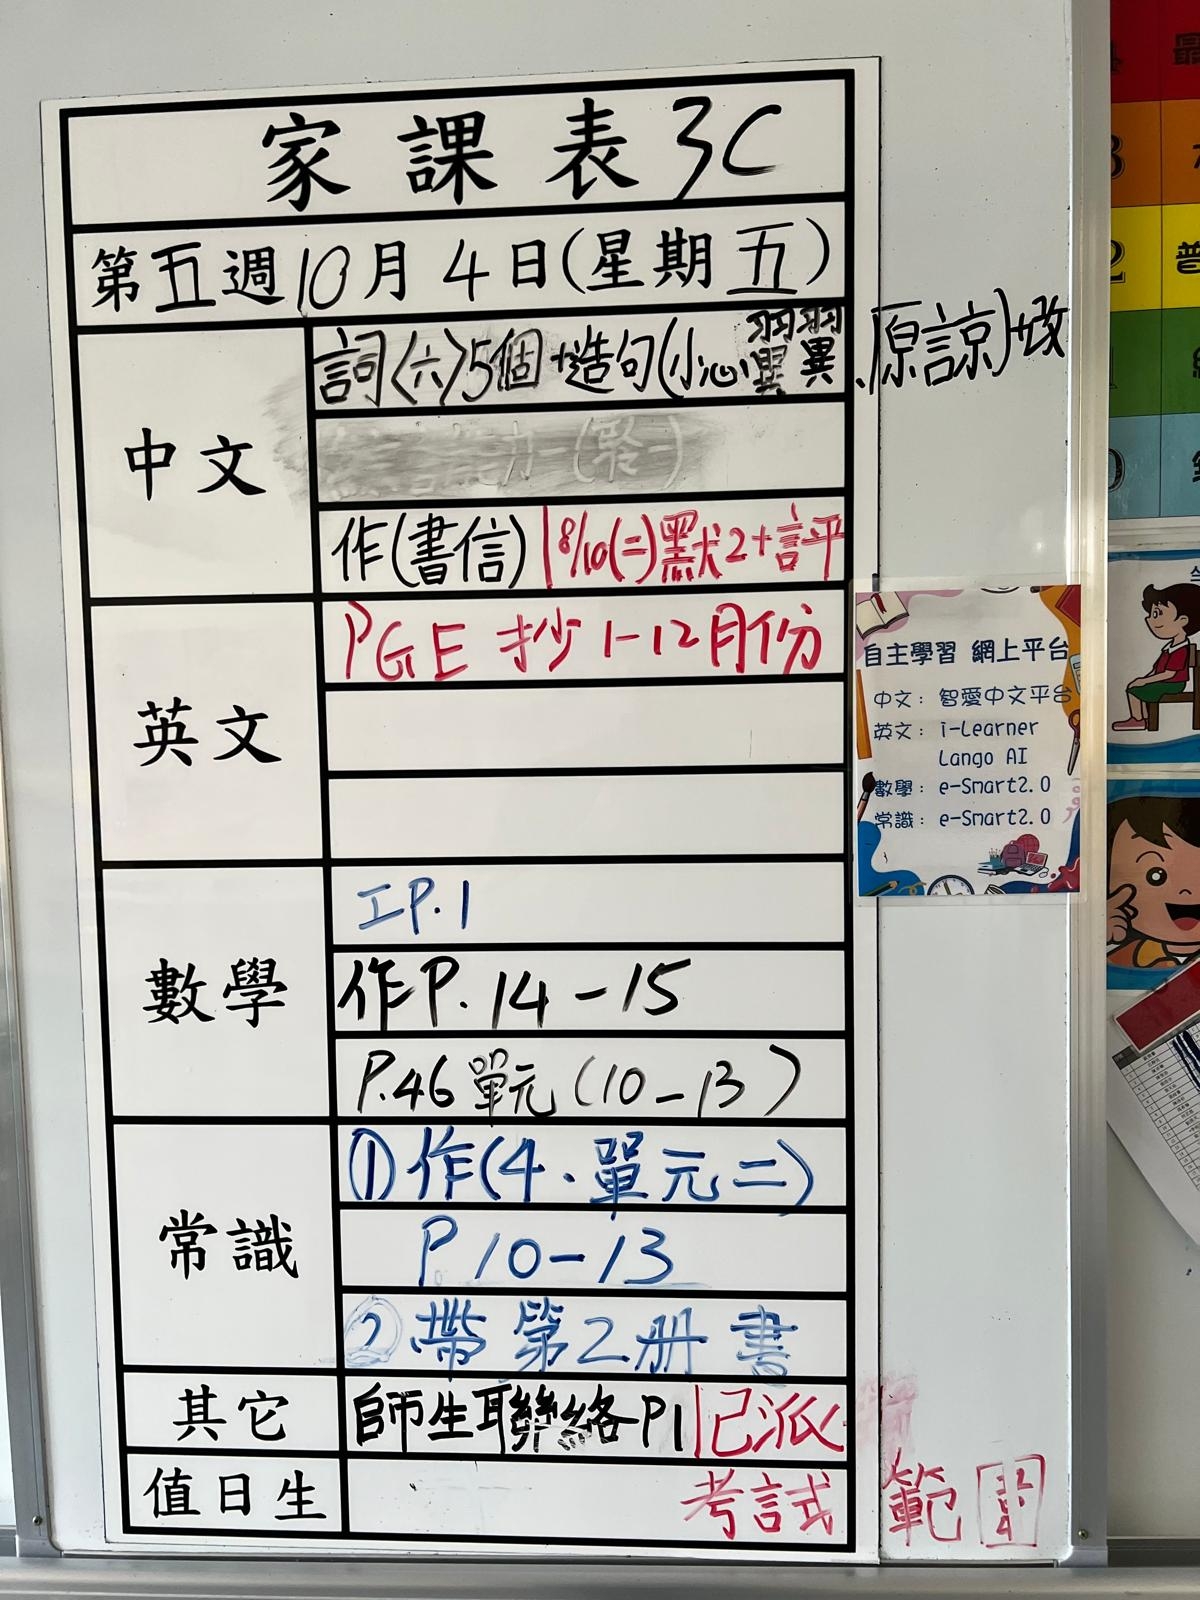 家課表3C
第五週10月4日(星期五)
中文
詞〈六〉5個+造句(小心翼翼、原諒)+改
作(書信)|8/10(二)默2+評
英文
PGE 抄1-12月份
數學
工P.1
作P.14-15
P.46單元(10-13)
常識
①作(4.單元二)
P10-13
②帶第2册書
其它
師生聯絡-P1|已派
值日生
考試範圍
自主學習 網上平台
中文: 智愛中文平台
英文: i-Learner
Lango AI
數學: e-Smart2.0
常識: e-Smart2.0